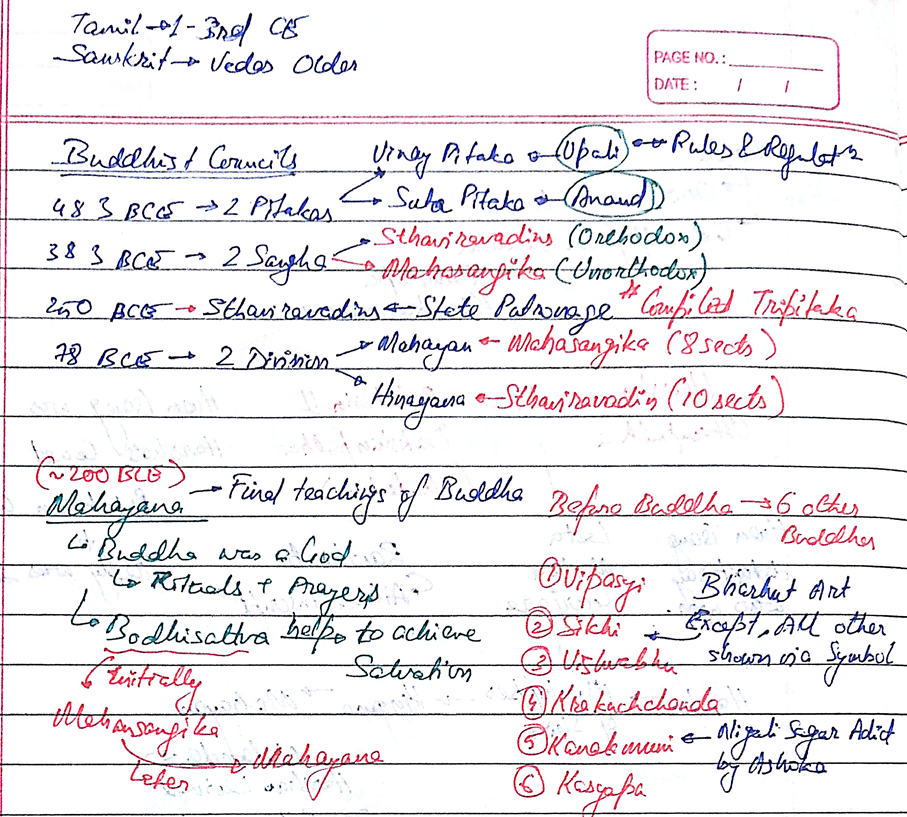 Tamil → 1 - 3rd CE
Sanskrit → Vedas Older
PAGE NO.:
DATE: / /
Buddhist Councils
Vinay Pitaka ← Upali ← Rules & Regulatn
483 BCE → 2 Pitakas
Suta Pitaka ← Anand
Sthaviravadins (Orthodox)
383 BCE → 2 Sangha
Mahasangika (Unorthodox)
250 BCE → Sthaviravadins ← State Patronage # Compiled Tripitaka
78 BCE → 2 Division
Mahayan ← Mahasangika (8 sects)
Hinayana ← Sthaviravadin (10 sects)
(~200 BCE)
Mahayana → Final teachings of Buddha
↳ Buddha was a God
↳ Rituals + Prayers
↳ Bodhisattva help to achieve
Salvation
Initially
Mahansangika
Later → Mahayana
Before Buddha → 6 other
Buddhas
① Vipasyi
Bharhut Art
② Sikhi ← Except, All other
shown via Symbol
③ Vishwabhu
④ Krakuchchanda
⑤ Kanakmuni ← Nigali Sagar Adict
by Ashoka
⑥ Kasyapa